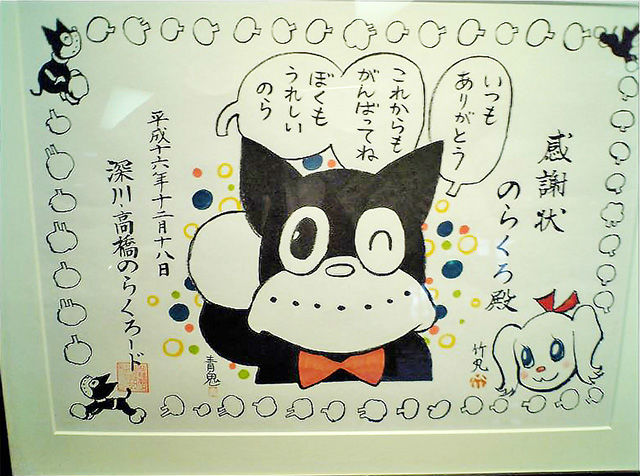 感謝状
のらくろ殿
いつも
ありがとう
これからも
がんばってね
ぼくも
うれしい
のら
平成十六年十二月十八日
深川・高橋のらくろード
青鬼
竹丸